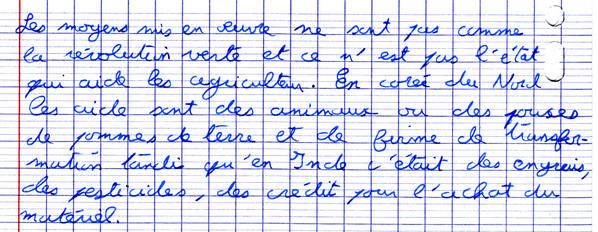 Les moyens mis en œuvre ne sont pas comme
la révolution verte et ce n'est pas l'état
qui aide les agriculteur. En corée du Nord
les aide sont des animaux ou des pouses
de pommes de terre et de firme de transfor-
mation tandis qu'en Inde c'était des engrais,
des pesticides, des crédit pour l'achat du
matériel.